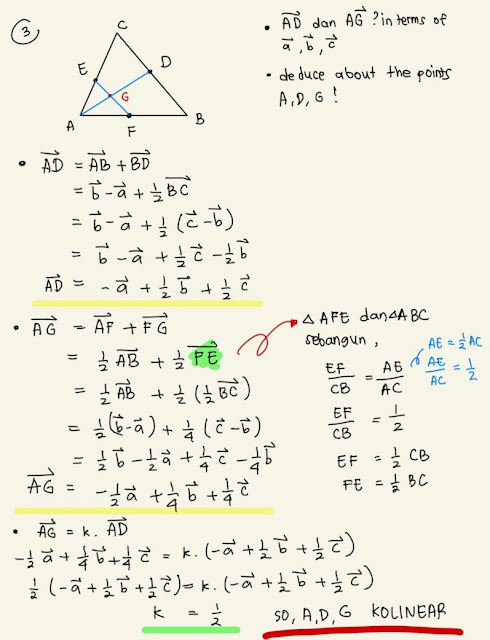 ③
C
E
D
G
A
F
B
• \vec{AD} dan \vec{AG} ? in terms of
\vec{a}, \vec{b}, \vec{c}
• deduce about the points
A, D, G !
• \vec{AD} = \vec{AB} + \vec{BD}
= \vec{b} - \vec{a} + ½ \vec{BC}
= \vec{b} - \vec{a} + ½ (\vec{c} - \vec{b})
= \vec{b} - \vec{a} + ½ \vec{c} - ½ \vec{b}
\vec{AD} = - \vec{a} + ½ \vec{b} + ½ \vec{c}
• \vec{AG} = \vec{AF} + \vec{FG}
= ½ \vec{AB} + ½ \vec{FE}
= ½ \vec{AB} + ½ (½ \vec{BC})
= ½ (\vec{b} - \vec{a}) + ¼ (\vec{c} - \vec{b})
= ½ \vec{b} - ½ \vec{a} + ¼ \vec{c} - ¼ \vec{b}
\vec{AG} = - ½ \vec{a} + ¼ \vec{b} + ¼ \vec{c}
△ AFE dan △ ABC
sebangun,
EF/CB = AE/AC
AE = ½ AC
AE/AC = ½
EF/CB = ½
EF = ½ CB
FE = ½ BC
• \vec{AG} = k. \vec{AD}
- ½ \vec{a} + ¼ \vec{b} + ¼ \vec{c} = k. (- \vec{a} + ½ \vec{b} + ½ \vec{c})
½ (- \vec{a} + ½ \vec{b} + ½ \vec{c}) = k. (- \vec{a} + ½ \vec{b} + ½ \vec{c})
k = ½
so, A, D, G KOLINEAR